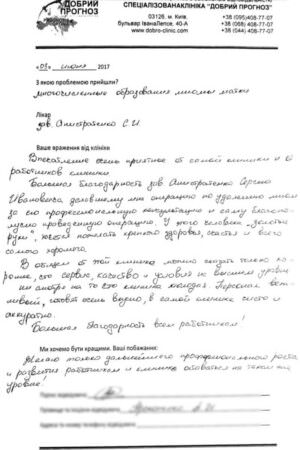 ДОБРИЙ
ПРОГНОЗ
СПЕЦІАЛІЗОВАНА КЛІНІКА "ДОБРИЙ ПРОГНОЗ"
03126, м. Київ,
бульвар Івана Лепсе, 40-А
www.dobro-clinic.com
+38 (095) 408-77-07
+38 (068) 408-77-07
+38 (044) 408-77-07
2017
З якою проблемою прийшли?
многочисленные образования миомы матки
Лікар
зав. С.И
Ваше враження від клініки
Впечатление очень приятное от самой клиники и
работников клиники
Большая благодарность зав. Сергею
Ивановичу, мне операцию по удалению миом
за его профессиональную консультацию и саму
проведенную операцию. У этого человека "золотые
руки", хочется пожелать крепкого здоровья, счастья и всего
самого хорошего.
В общем об этой клинике можно сказать только хо-
рошее, его сервис, качество и условия на высшем уровне
не смотря на то что клиника молодая. Персонал веж-
ливый, готовят очень вкусно, в самой клинике чисто и
аккуратно.
Большая благодарность всем работникам!
Ми хочемо бути кращими. Ваші побажання:
Желаю только дальнейшего профессионального роста
и развития работникам и клинике оставаться на таком
уровне!